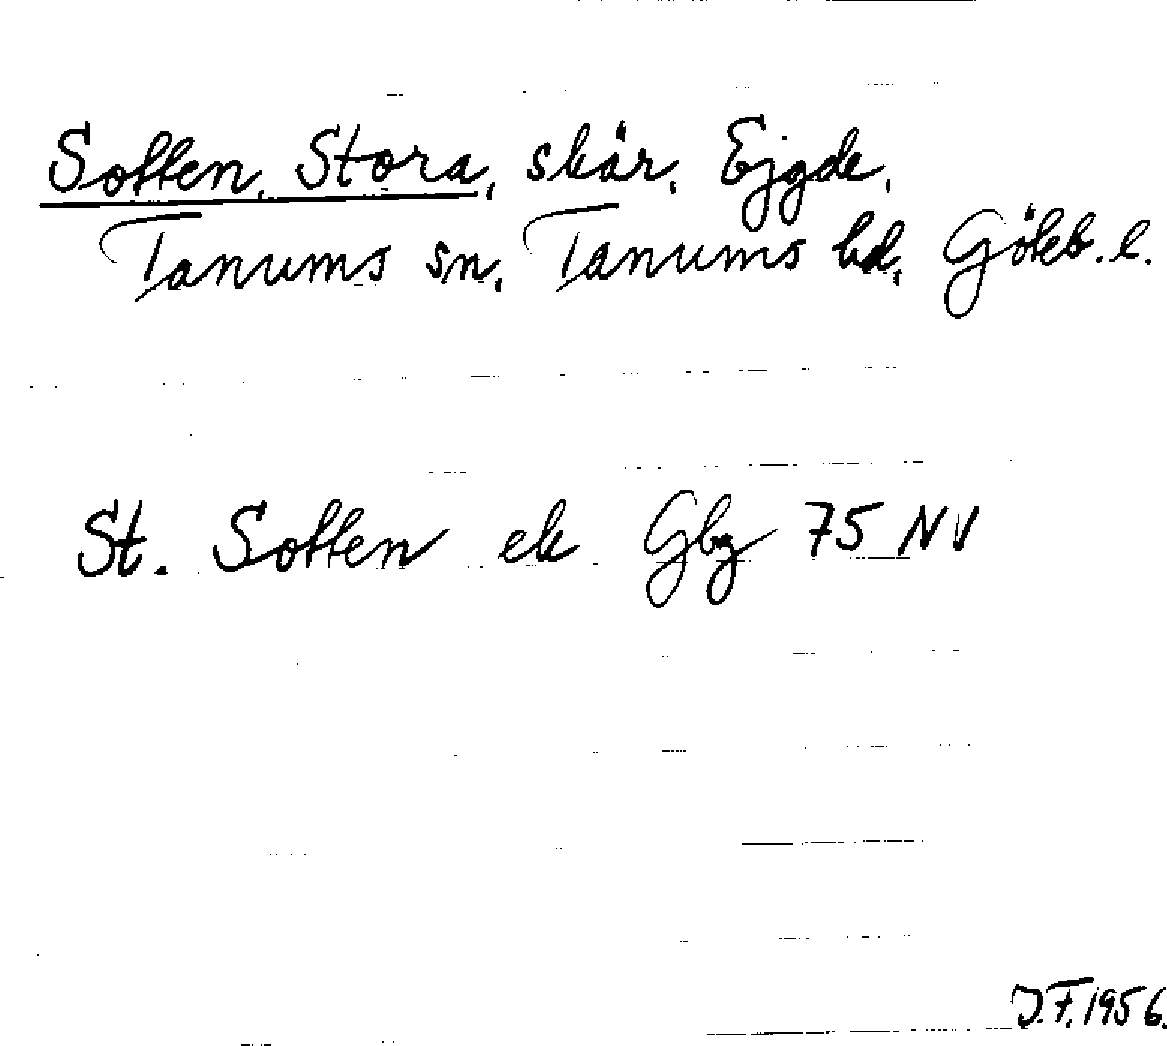 Sotten, Stora, skär, Ejgde,
Tanums sn, Tanums hd, Göteb. l.
St. Sotten ek Gbg 75 NV
J.F. 1956.